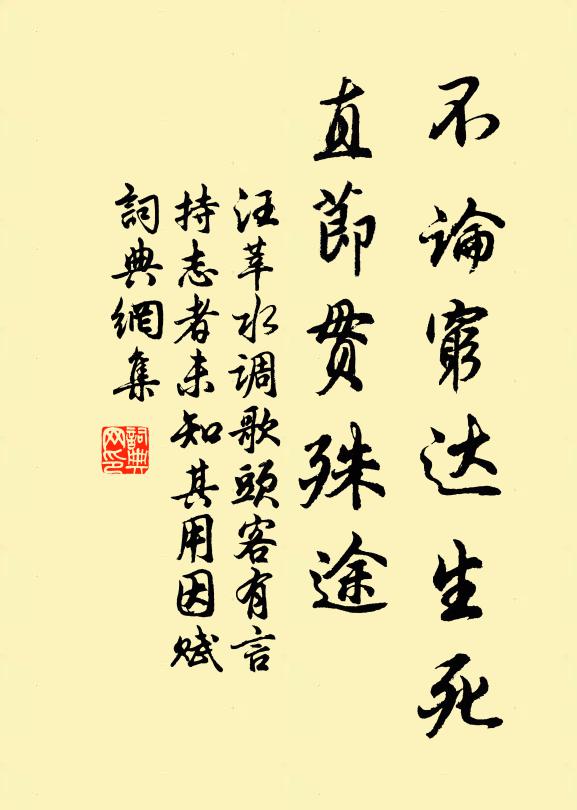 不论窮达生死
直節贯殊途
汪莘水调歌頭客有言
持志者未知其用因赋
詞典網集
詞典
网印